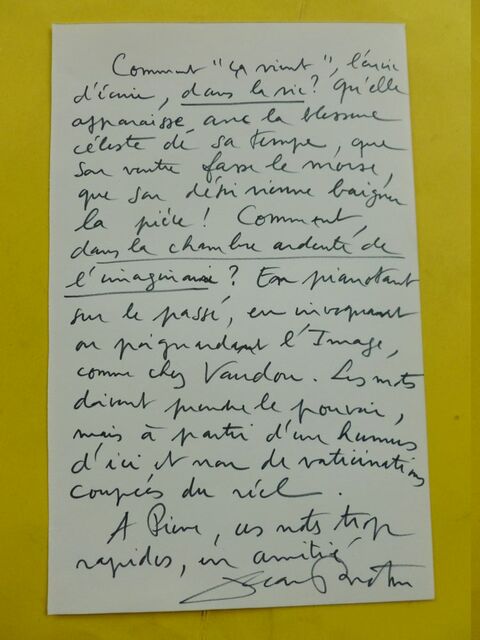 Comment "ça vient", l'envie
d'écrire, dans la vie? Qu'elle
apparaisse avec la blessure
céleste de sa tempe, que
son ventre fasse le morse,
que son désir vienne baigner
la pièce! Comment,
dans la chambre ardente de
l'imaginaire? En pianotant
sur le passé, en invoquant
ou poignardant l'Image,
comme chez Vaudou. Les mots
doivent prendre le pouvoir,
mais à partir d'un humus
d'ici et non de vaticinations
coupées du réel.
A Pierre, ces mots trop
rapides, en amitié